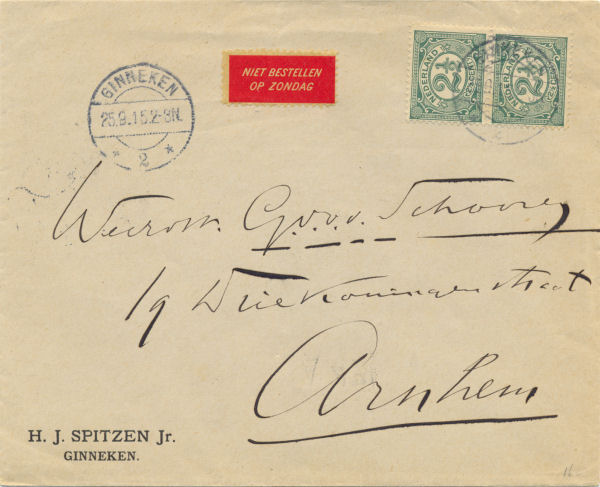 GINNEKEN
25.9.15.2-3N.
* 2 *
NIET BESTELLEN
OP ZONDAG
NEDERLAND
2½
2½
G. v. v. v. Schooneg
19 Driekoningenstraat
Arnhem
H. J. SPITZEN Jr.
GINNEKEN.